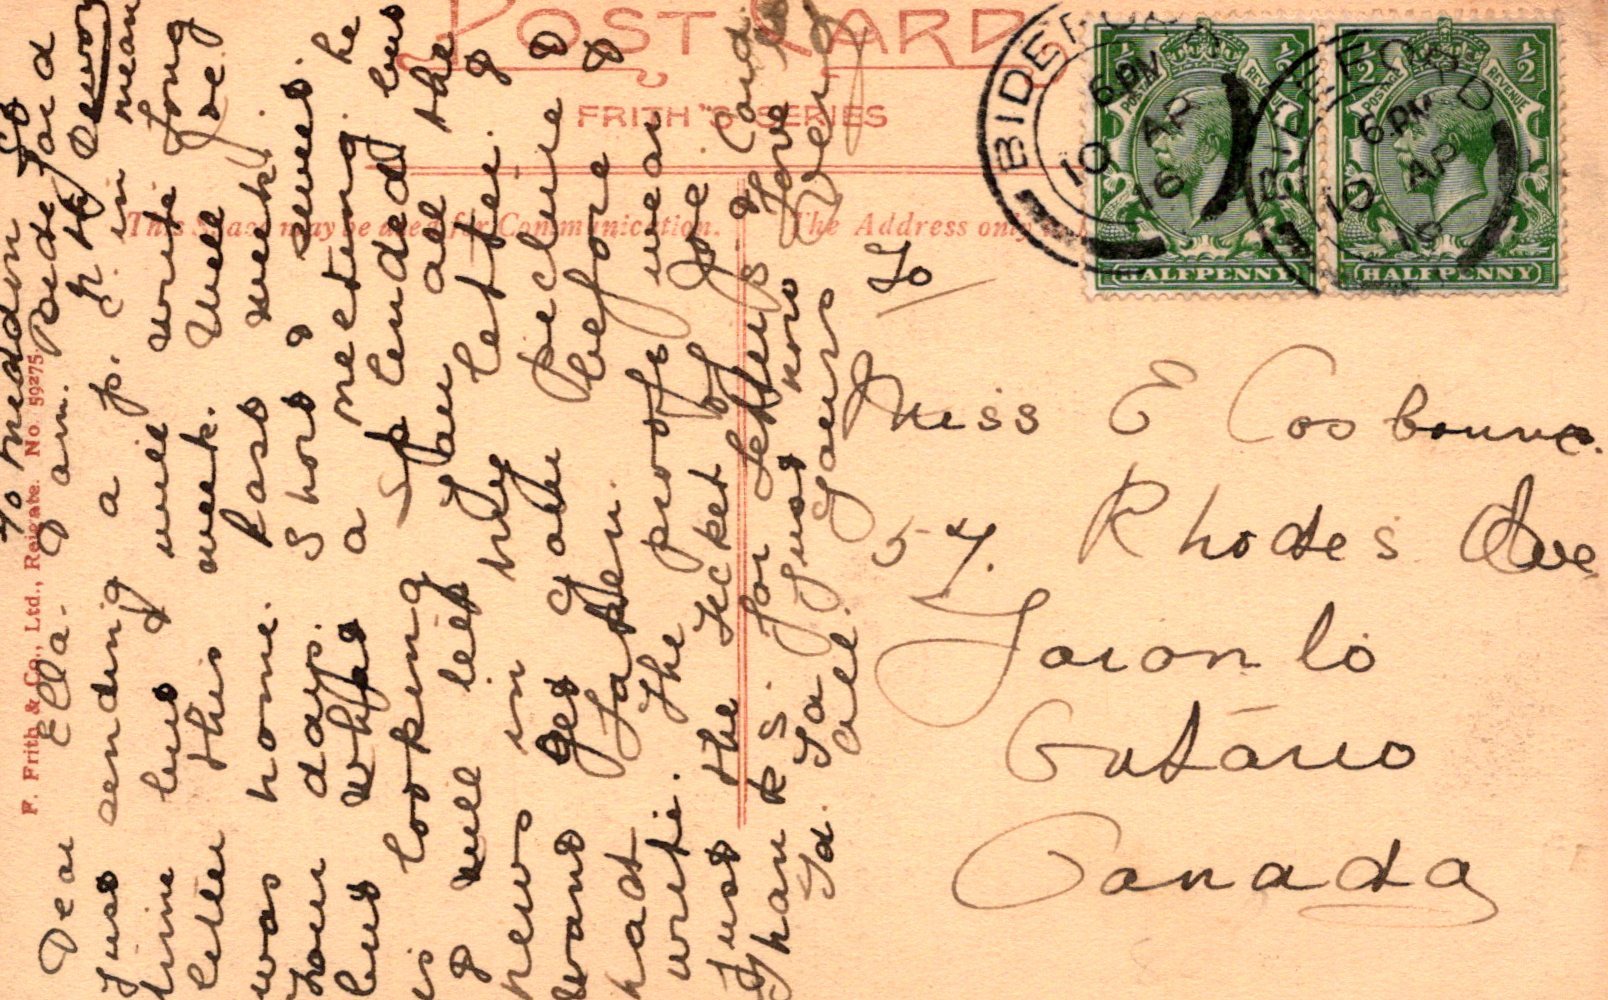 POST CARD
FRITH'S SERIES
This Space may be used for Communication.
The Address only
F. Frith & Co., Ltd., Reigate. No. 59275.
BIDEFORD
6 PM
10 AP
16
BIDEFORD
6. PM
10 AP
16
½ ½
POSTAGE REVENUE
HALFPENNY
½ ½
POSTAGE REVENUE
HALFPENNY
40 Meddon St
Bideford
Dear Ella. I am
Just sending a p. c. in mean
time but will write long
letter this week. Well Joe
was home last week
four days. Short & sweet.
but what a meeting. he
is looking splended but
I will tell you all the
news in my letter. I
want get you picture I
had taken before I
write. The proofs wear
Just the ticket of Joe &
Thanks for letters & Card.
Ta. Ta Just now Love to
all. Yours
To
Miss E Cosbourne.
57. Rhodes Ave
Toronto
Ontario
Canada